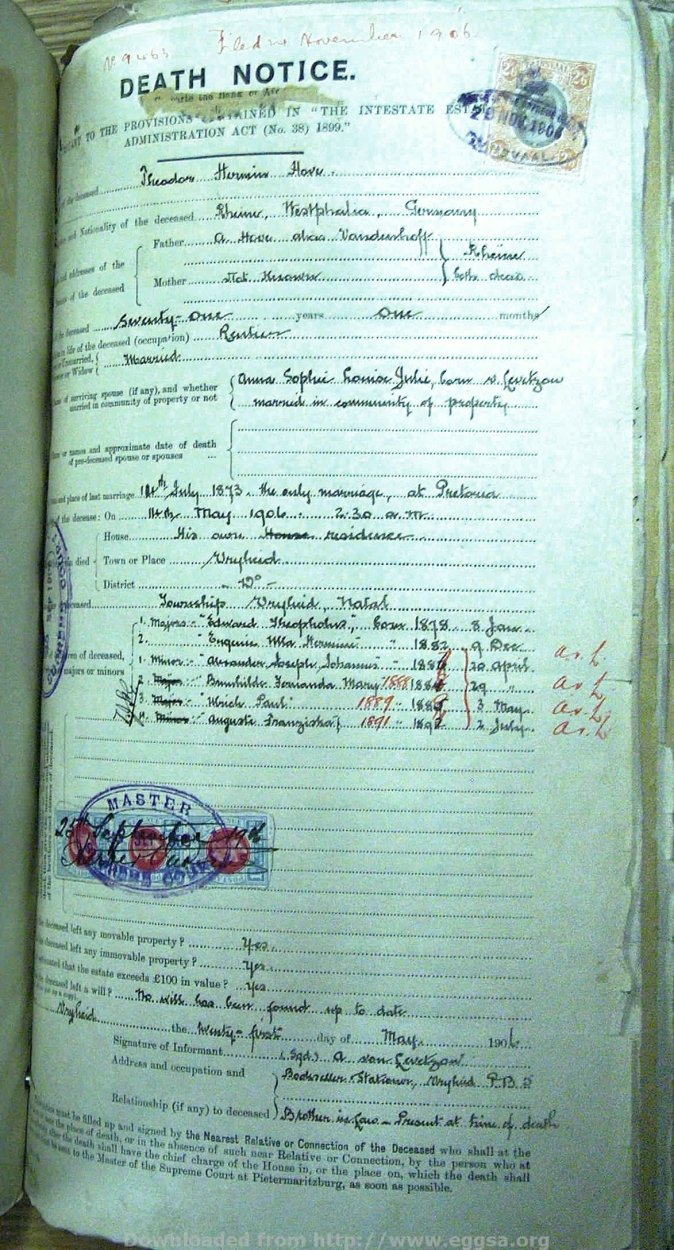 No 9463 Filed 2 November 1906
DEATH NOTICE.
TO THE PROVISIONS CONTAINED IN "THE INTESTATE
ADMINISTRATION ACT (No. 38) 1899."
of the deceased Theodor Hove
and Nationality of the deceased Rheine, Westphalia, Germany
Father A Hove alias Vanderhoff
and addresses of the Rheine
of the deceased Mother Not Known both dead
the deceased Seventy-one years One months
in life of the deceased (occupation) Rentier
or Unmarried, or Widow Married
of surviving spouse (if any), and whether Anna Sophie Louise Julie, born v. Levetzow
married in community of property or not married in community of property
or names and approximate date of death
of pre-deceased spouse or spouses
and place of last marriage 14th July 1873. the only marriage, at Pretoria
of the decease: On 14th May 1906. 2.30 a.m.
House His own House residence
died Town or Place Vryheid
District - Do -
deceased Township Vryheid, Natal
1. Majors - "Edward Theopholus", born 1878 8 Jan
2. " Eugenie Ella Hermine " 1882 9 Dec
ren of deceased, 1. Minor - Alexander Joseph Johannes - 20 April
majors or minors 2. Major - Brunhilde Fernanda Mary 1888 29 "
3. Major - Ulrich Paul 1889 3 May
4. Minor - Auguste Franziska 1891 2 July
MASTER
SUPREME COURT
25th September 1906
deceased left any movable property? Yes
deceased left any immovable property? Yes
that the estate exceeds £100 in value? Yes
deceased left a will? No will has been found up to date
Vryheid the twenty-first day of May 1906
Signature of Informant (Sgd) A von Levetzow
Address and occupation and Bookseller & Stationer, Vryheid P.B. 2
Relationship (if any) to deceased Brother in Law - Present at time of death
must be filled up and signed by the Nearest Relative or Connection of the Deceased who shall at the
place of death, or in the absence of such near Relative or Connection, by the person who at
the death shall have the chief charge of the House in, or the place on, which the death shall
to the Master of the Supreme Court at Pietermaritzburg, as soon as possible.
Downloaded from http://www.eggsa.org